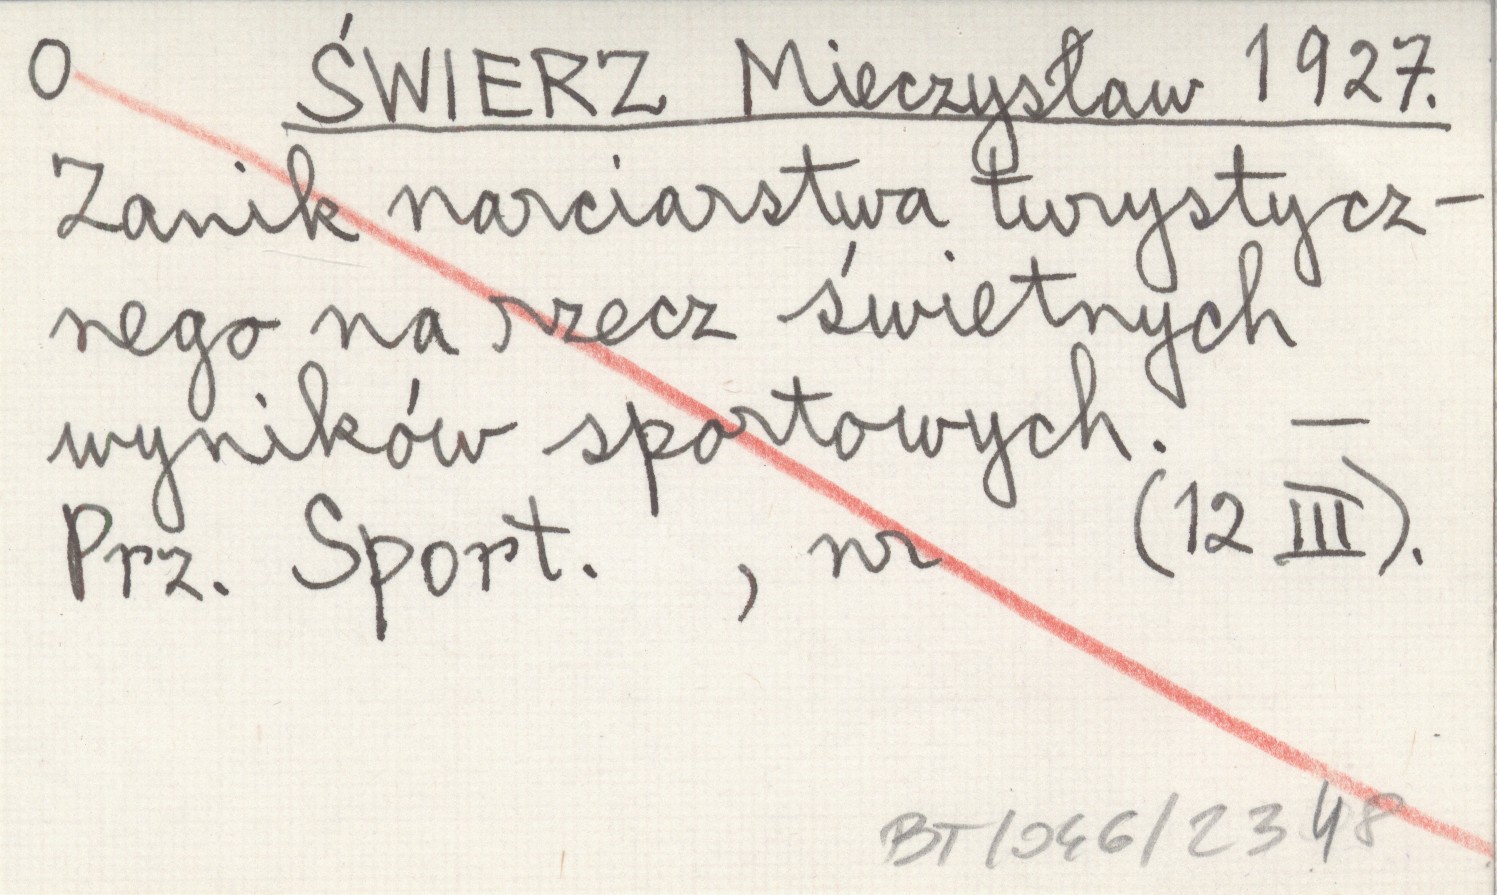 O ŚWIERZ Mieczysław 1927.
Zanik narciarstwa turystycz-
nego na rzecz świetnych
wyników sportowych. —
Prz. Sport. , nr (12 III).
BT/046/2348